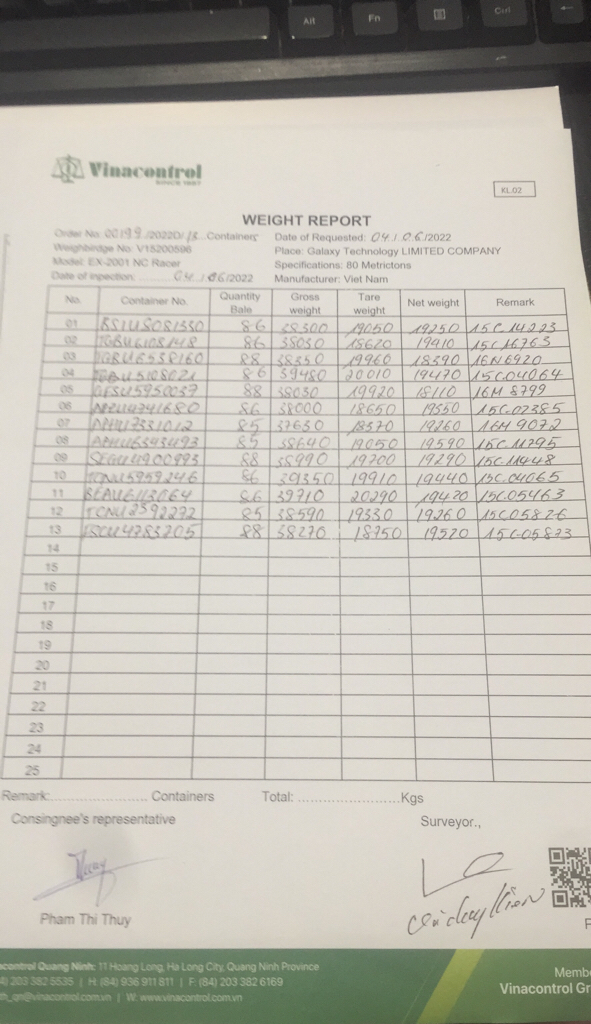 Alt
Fn
Ctrl
Vinacontrol
SINCE 1957
KL.02
WEIGHT REPORT
Order No: 00199 /2022D/ 13 Containers
Date of Requested: 04 / 06/2022
Weighbridge No: V15200596
Place: Galaxy Technology LIMITED COMPANY
Model: EX-2001 NC Racer
Specifications: 80 Metrictons
Date of inpection: 04 / 06/2022
Manufacturer: Viet Nam
No. Container No. Quantity Bale Gross weight Tare weight Net weight Remark
01 BSIU8081330 86 38300 19050 19250 15C14223
02 86 38030 18620 19410 15C16763
03 88 38350 19960 18390 16N6920
04 86 39480 20010 19470 15C04064
05 88 38030 19920 18110 16M 8799
06 86 38000 18650 15C02385
07 85 37630 18370 19260 16M 9072
08 85 38640 19050 19590 15C11795
09 SEGU4900993 88 38990 19700 19290 15C11448
10 TCNU5959246 86 39350 19910 19440 15C04065
11 86 39710 20290 19420 15C05463
12 TCNU2592272 85 38590 19330 19260 15C05826
13 88 38270 18750 19520 15C05873
14
15
16
17
18
19
20
21
22
23
24
25
Remark: Containers Total: Kgs
Consingnee's representative
Surveyor.,
Thuy
Pham Thi Thuy
acontrol Quang Ninh: 11 Hoang Long, Ha Long City, Quang Ninh Province
4) 203 382 5535 | H: (84) 936 911 811 | F: (84) 203 382 6169
th_qn@vinacontrol.com.vn | W: www.vinacontrol.com.vn
Memb
Vinacontrol Gr